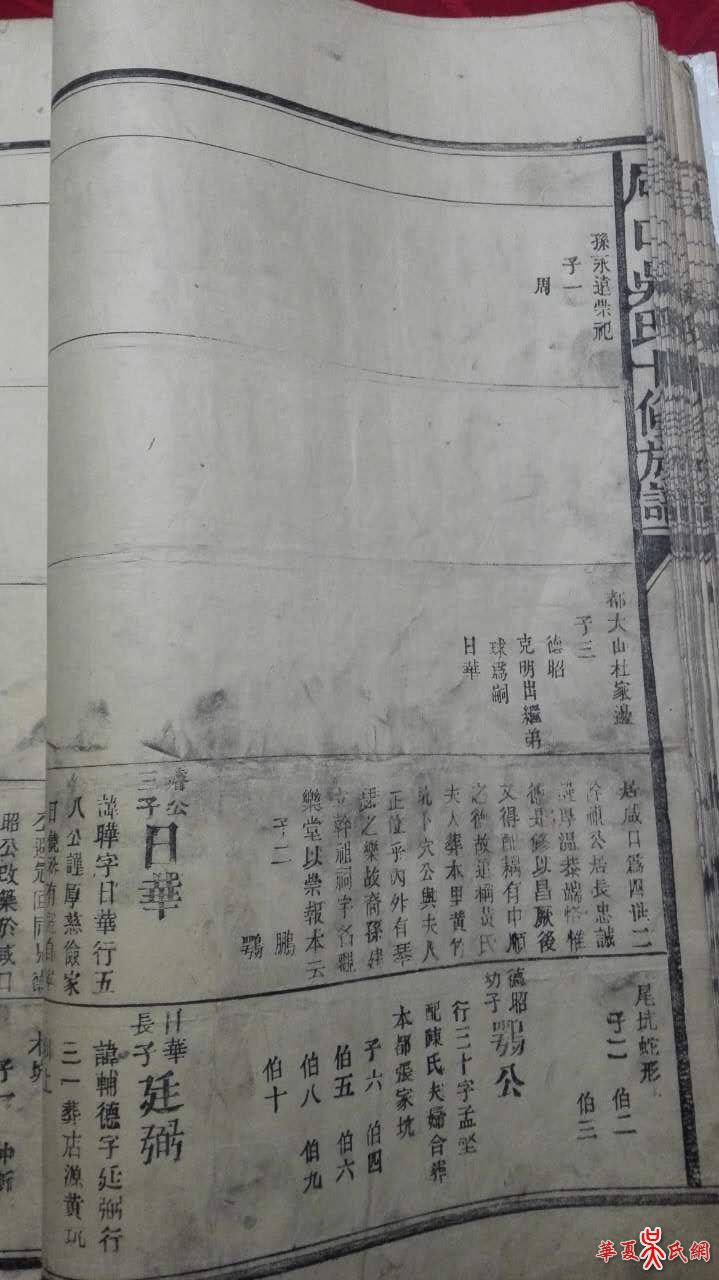 咸口吳氏十修族譜
孫永遠崇祀
子一
周
都大山杜家邊
子三
德昭
克明出繼弟
球爲嗣
日華
居咸口爲四世二
公居長忠誠
厚溫恭端恪惟
修以昌厥後
文得配耦有中順
之德故追稱黃氏
夫人葬本里黃竹
坑下穴公與夫人
正位乎內外有琴
瑟之樂故裔孫建
立幹祖祠字名
樂堂以崇報本云
子二
鵬
鶚
濬公
三子
日華
諱曄字日華行五
八公謹厚慈儉家
昭公改築於咸口
尾坑蛇形
子二 伯二
伯三
德昭
幼子
鶚公
行三十字孟堅
配陳氏夫婦合葬
本都張家坑
子六 伯四
伯五 伯六
伯八 伯九
伯十
日華
長子
廷弼
諱輔德字廷弼行
三一葬店源黃坑
子一
華夏吳氏網